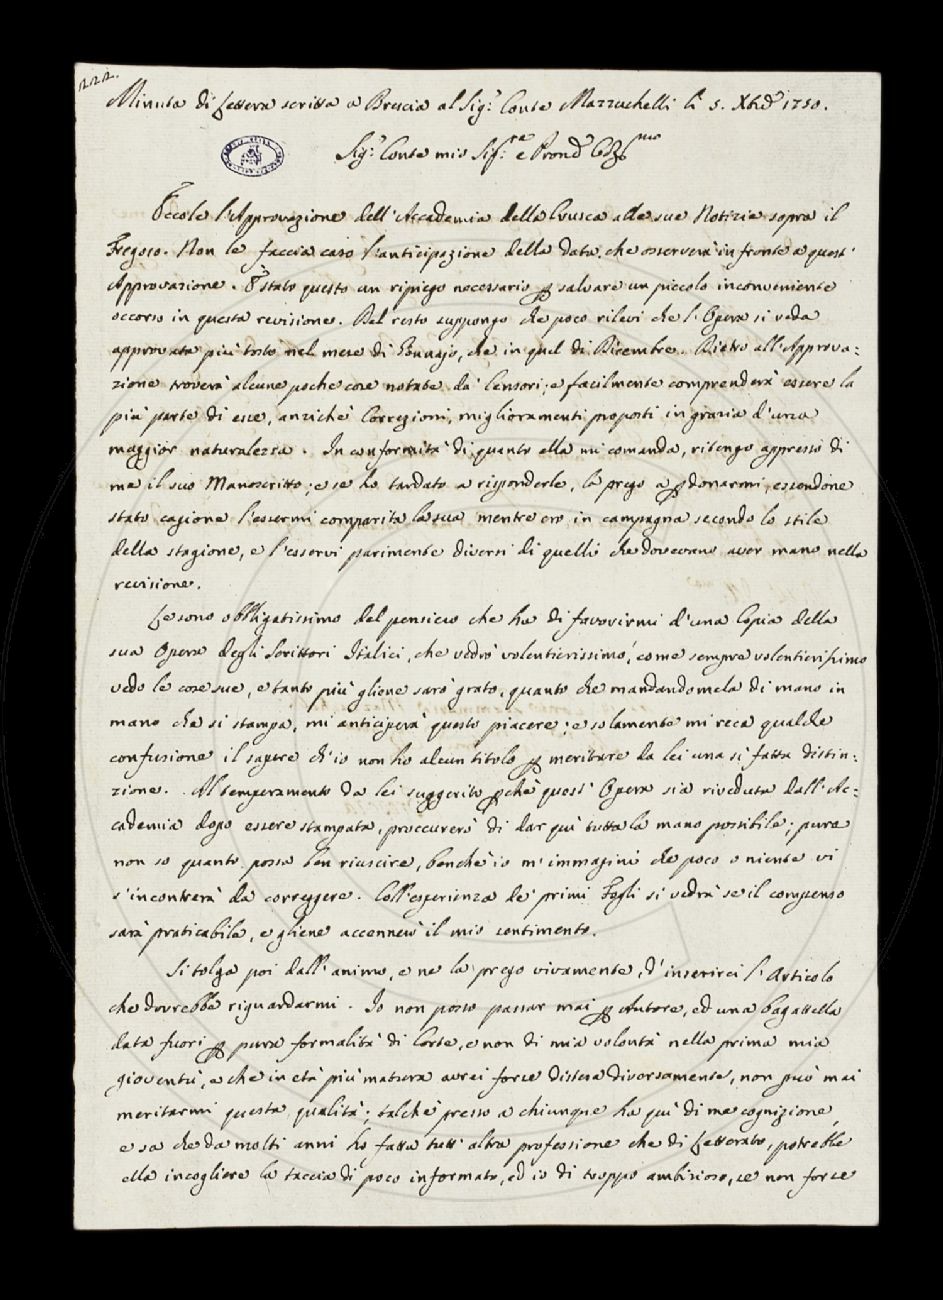 222.
Minuta di Lettera scritta a Brescia al Sig.r Conte Mazzuchelli li 5. Xbre 1750.
Sig.r Conte mio Sig.re e Pron̄e
Eccole l'Approvazione dell'Accademia della Crusca alle sue Notizie sopra il
Fregoso. Non le faccia caso l'anticipazione della data, che osserverà in fronte a quest'
Approvazione. È stato questo un ripiego necessario p salvare un piccolo inconveniente
occorso in questa revisione. Del resto suppongo che poco rilevi che l'Opera si veda
approvata più tosto nel mese di Gennajo, che in quel di Dicembre. Dietro all'Approva:
zione troverà alcune poche cose notate da' Censori; e facilmente comprenderà essere la
più parte di esse, anzichè Correzioni, miglioramenti proposti in grazia d'una
maggior naturalezza. In conformità di quanto ella mi comanda, ritengo appresso di
me il suo Manoscritto; e se ho tardato a risponderle, la prego a pdonarmi, essendone
stato cagione l'essermi comparita la sua mentre ero in campagna secondo lo stile
della stagione, e l'esservi parimente diversi di quelli che dovevano aver mano nella
revisione.
Le sono obbligatissimo del pensiero che ha di favorirmi d'una Copia della
sua Opera degli Scrittori Italici, che vedrò volentierissimo, come sempre volentierissimo
vedo le cose sue, e tanto più gliene sarò grato, quanto che mandandomela di mano in
mano che si stampa, mi anticiperà questo piacere; e solamente mi reca qualche
confusione il sapere ch'io non ho alcun titolo p meritare da lei una sì fatta distin:
zione. Al temperamento da lei suggerito pchè quest'Opera sia riveduta dall'Ac:
cademia dopo essere stampata, proccurerò di dar quì tutta la mano possibile; pure
non so quanto possa ben riuscire, benchè io m'immagini che poco o niente vi
s'incontrerà da correggere. Coll'esperienza de' primi Fogli si vedrà se il compenso
sarà praticabile, e gliene accennerò il mio sentimento.
Si tolga poi dall'animo, e ne la prego vivamente, d'inserirci l'Articolo
che dovrebbe riguardarmi. Io non posso passar mai p Autore, ed una bagattella
data fuori p pura formalità di Corte, e non di mia volontà nella prima mia
gioventù, e che in età più matura avrei forse distesa diversamente, non può mai
meritarmi questa qualità; talchè presso a chiunque ha quì di me cognizione,
e sa che da molti anni ho fatta tutt'altra professione che di Letterato, potrebbe
ella incogliere la taccia di poco informato, ed io di troppo ambizioso, se non forse